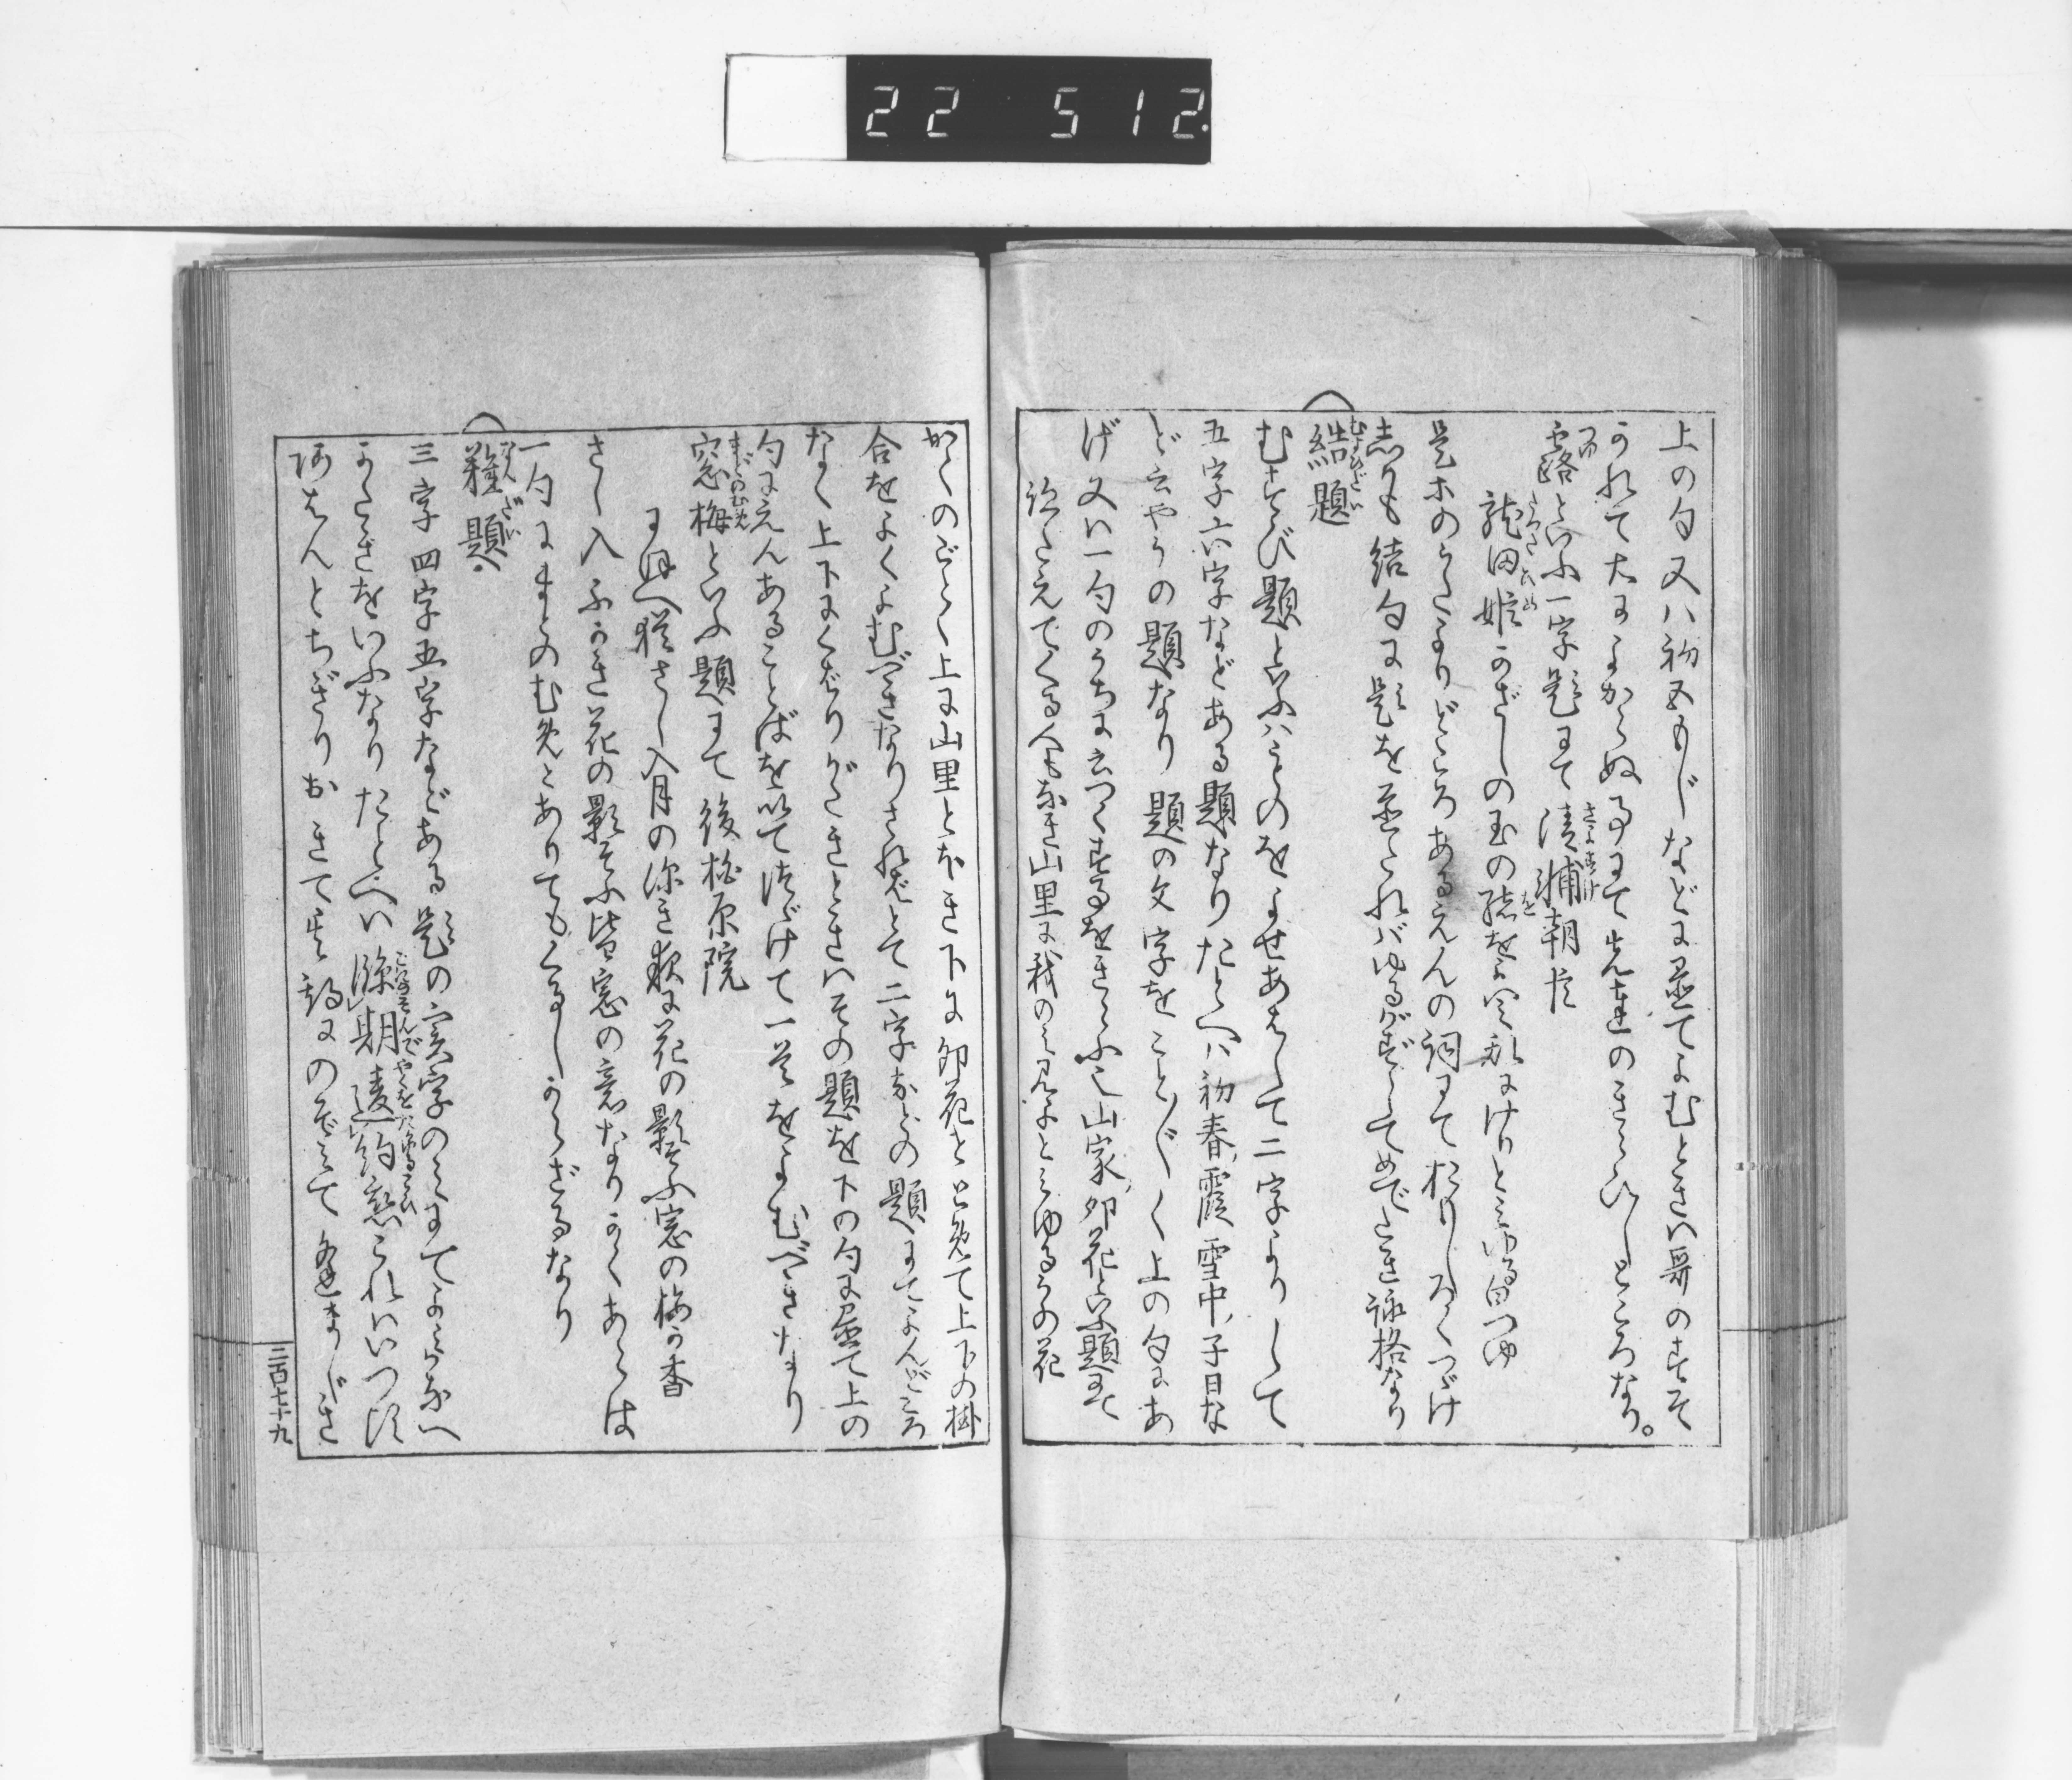 22 512.
上の句又ハ初五もじなどに置てよむときハ哥のすそ
かれて大によからぬ事にて先達のきらひしところなり。
露といふ一字題にて 清輔朝臣
龍田姫かざしの玉の緒をよはみ乱にけりとみゆる白つゆ
是等のうたよりどころあるえんの詞にておりしろくつゞけ
しかも結句に題を置たればゆるがずしてめでたき詠格なり
結題
むすび題といふハものをよせあはして二字よりして
五字六字などある題なりたとへハ初春霞雪中子日な
ど云やうの題なり題の文字をことごとく上の句にあ
げ又ハ一句のうちに云つくすをきらふ也山家卯花といふ題にて
跡たえてくる人もなき山里に我のみ見よとみゆるうの花
かくのごとく上に山里とおき下に卯花ととめて上下の掛
合をよくよむべきなりされどとて二字などの題にてよんどころ
なく上下にくばりがたきときハその題を下の句に置て上の
句にえんあることばを以てつゞけて一首をよむべきなり
窓梅といふ題にて 後柏原院
にほへ猶さし入月の深き夜に花の影そふ窓の梅か香
さし入ふかき花の影そふ皆窓の意なりかくあらは
一句にまどのむめとありてもくるしからざるなり
難題
三字四字五字などある題の実字のみにてよみかなへ
かたきをいふなりたとへハ 隙期違約恋これハいつ頃
あはんとちぎりおきて其期にのぞみて逢まじき
三百七十九